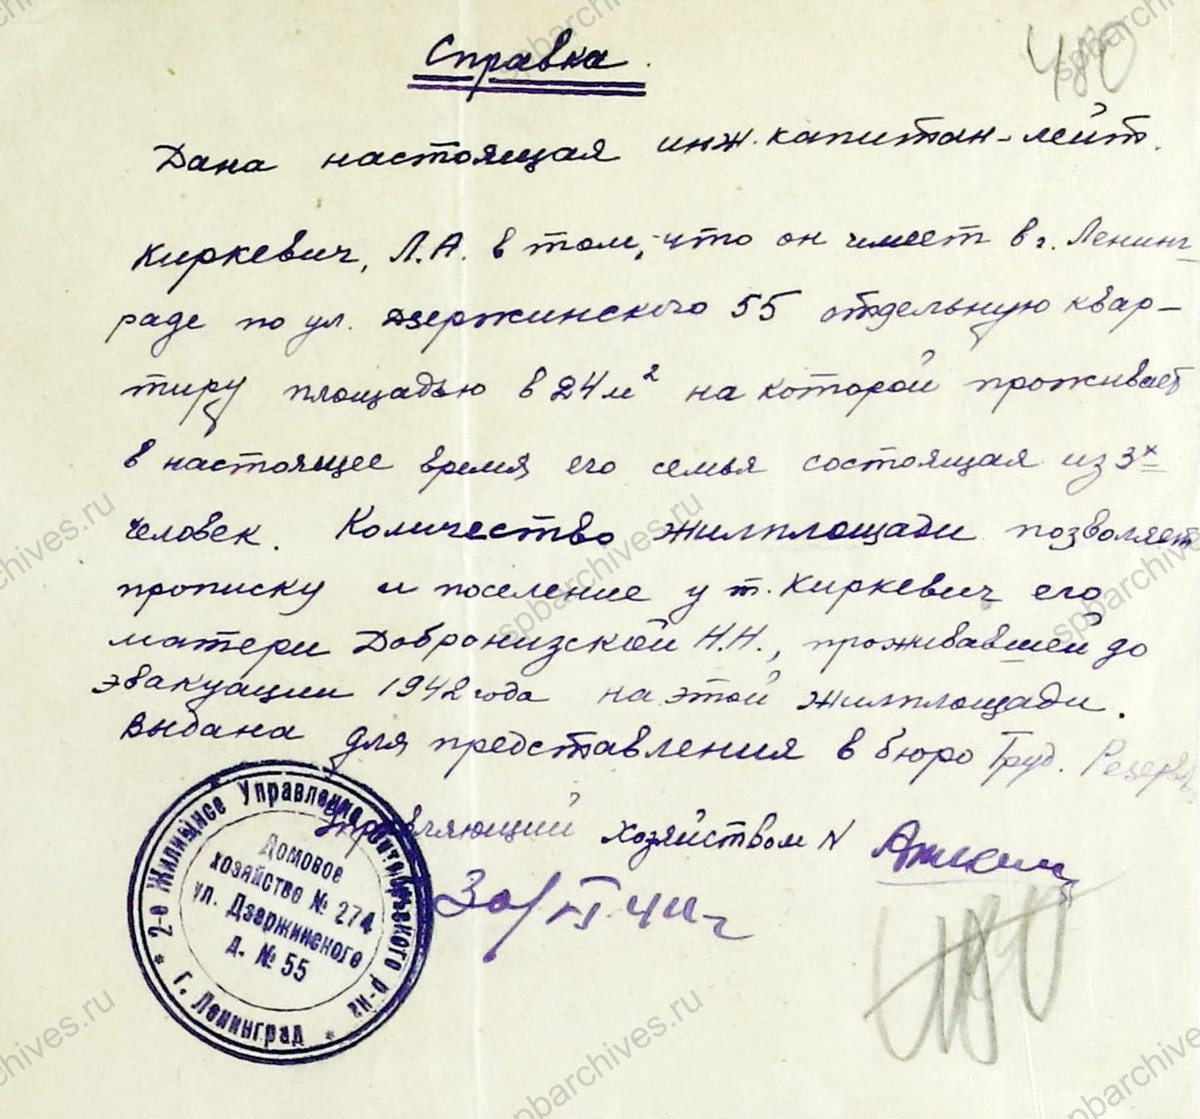 Справка.
480
Дана настоящая инж. капитан-лейт.
Киркевич, Л.А. в том, что он имеет в г. Ленинг-
раде по ул. Дзержинского 55 отдельную квар-
тиру площадью в 24 м² на которой проживает
в настоящее время его семья состоящая из 3х
человек. Количество жилплощади позволяет
прописку и поселение у т. Киркевич его
матери Добронизской Н.Н., проживавшей до
эвакуации 1942 года на этой жилплощади.
Выдана для представления в бюро Труд. Резервов
Управляющий хозяйством N
2-е Жилищное Управление Октябрьского р-на
г. Ленинград
Домовое
хозяйство № 274
ул. Дзержинского
д. № 55
spbarchives.ru